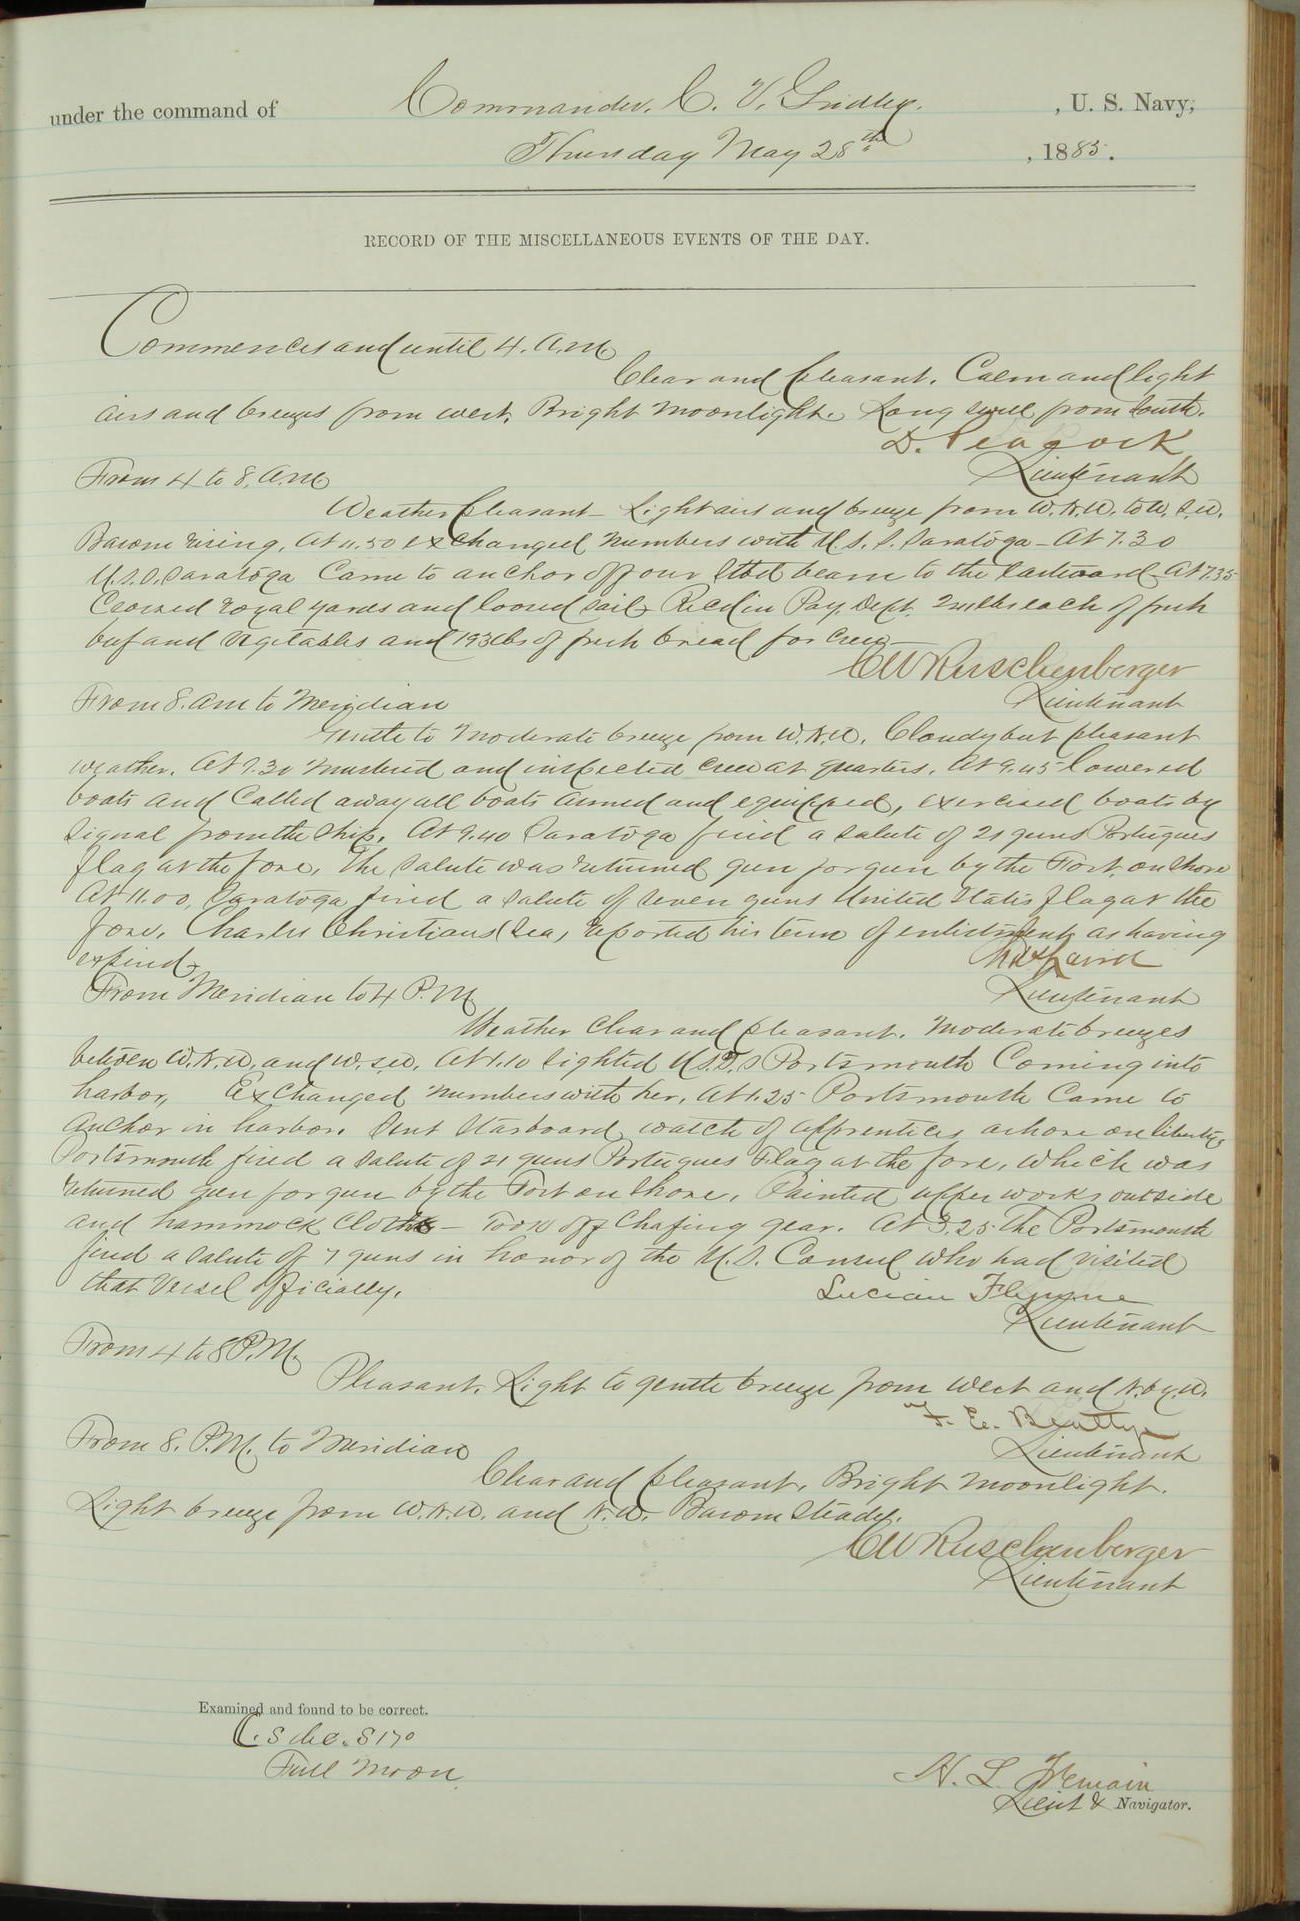 under the command of Commander. C. V. Gridley. , U. S. Navy,
Thursday May 28th , 1885.
RECORD OF THE MISCELLANEOUS EVENTS OF THE DAY.
Commences and until 4. A.M.
Clear and pleasant. Calm and light
airs and breezes from west. Bright moonlight. Long swell from South.
D. Peacock
Lieutenant
From 4 to 8. A.M.
Weather pleasant - Light airs and breeze from W.N.W. to W.S.W.
Barom rising. At exchanged numbers with U.S.S. Saratoga - At 7.30
U.S.S. Saratoga Came to anchor off our Stbd beam to the Eastward - At 7.35
Crossed royal yards and loosed sail. Recd in Pay. Dept. lbs each of fresh
beef and vegetables and 193 lbs of fresh bread for crew -
C W Ruschenberger
Lieutenant
From 8. am to Meridian
Gentle to moderate breeze from W.N.W. Cloudy but pleasant
weather. At 9.30 mustered and inspected crew at quarters. At 9.45 lowered
boats and Called away all boats armed and equipped, exercised boats by
Signal from the Ship. At 9.40 Saratoga fired a salute of 21 guns Portugues
flag at the fore, The salute was returned gun for gun by the Fort, on shore
At 11.00, Saratoga fired a salute of seven guns United States flag at the
fore. Charles Christians (Sea) reported his term of enlistment as having
expired.
Lieutenant
From Meridian to 4 P.M.
Weather Clear and pleasant. Moderate breezes
between W.N.W. and W.S.W. At 1.10 sighted U.S.S. Portsmouth Coming into
harbor, Exchanged numbers with her. At 1.25 Portsmouth Came to
anchor in harbor. Sent Starboard watch of apprentices ashore on liberty.
Portsmouth fired a salute of 21 guns Portugues Flag at the fore, which was
returned gun for gun by the Fort on Shore. Painted upper works outside
and hammock cloths - Took off Chafing gear. At 3.25 The Portsmouth
fired a salute of 7 guns in honor of the U.S. Consul who had visited
that Vessel officially.
Lucian Flynne
Lieutenant
From 4 to 8 P.M.
Pleasant. Light to gentle breeze from West and N. by W.
F. E. Beatty
Lieutenant
From 8. P.M. to Meridian
Clear and pleasant, Bright moonlight.
Light breeze from W.N.W. and N.W. Barom Steady.
C W Ruschenberger
Lieutenant
Examined and found to be correct.
Full Moon.
H. L. Tremain
Lieut & Navigator.